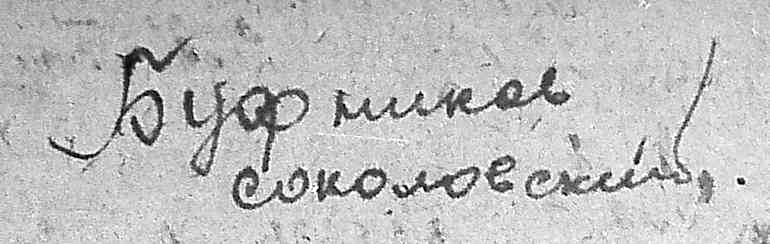 Буфников
соколовский.